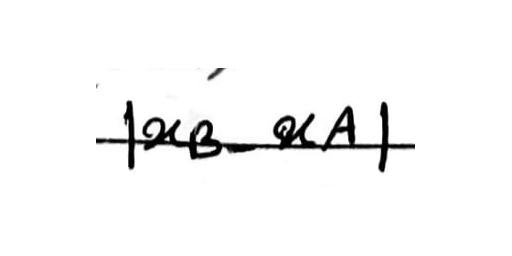 |xB - xA|